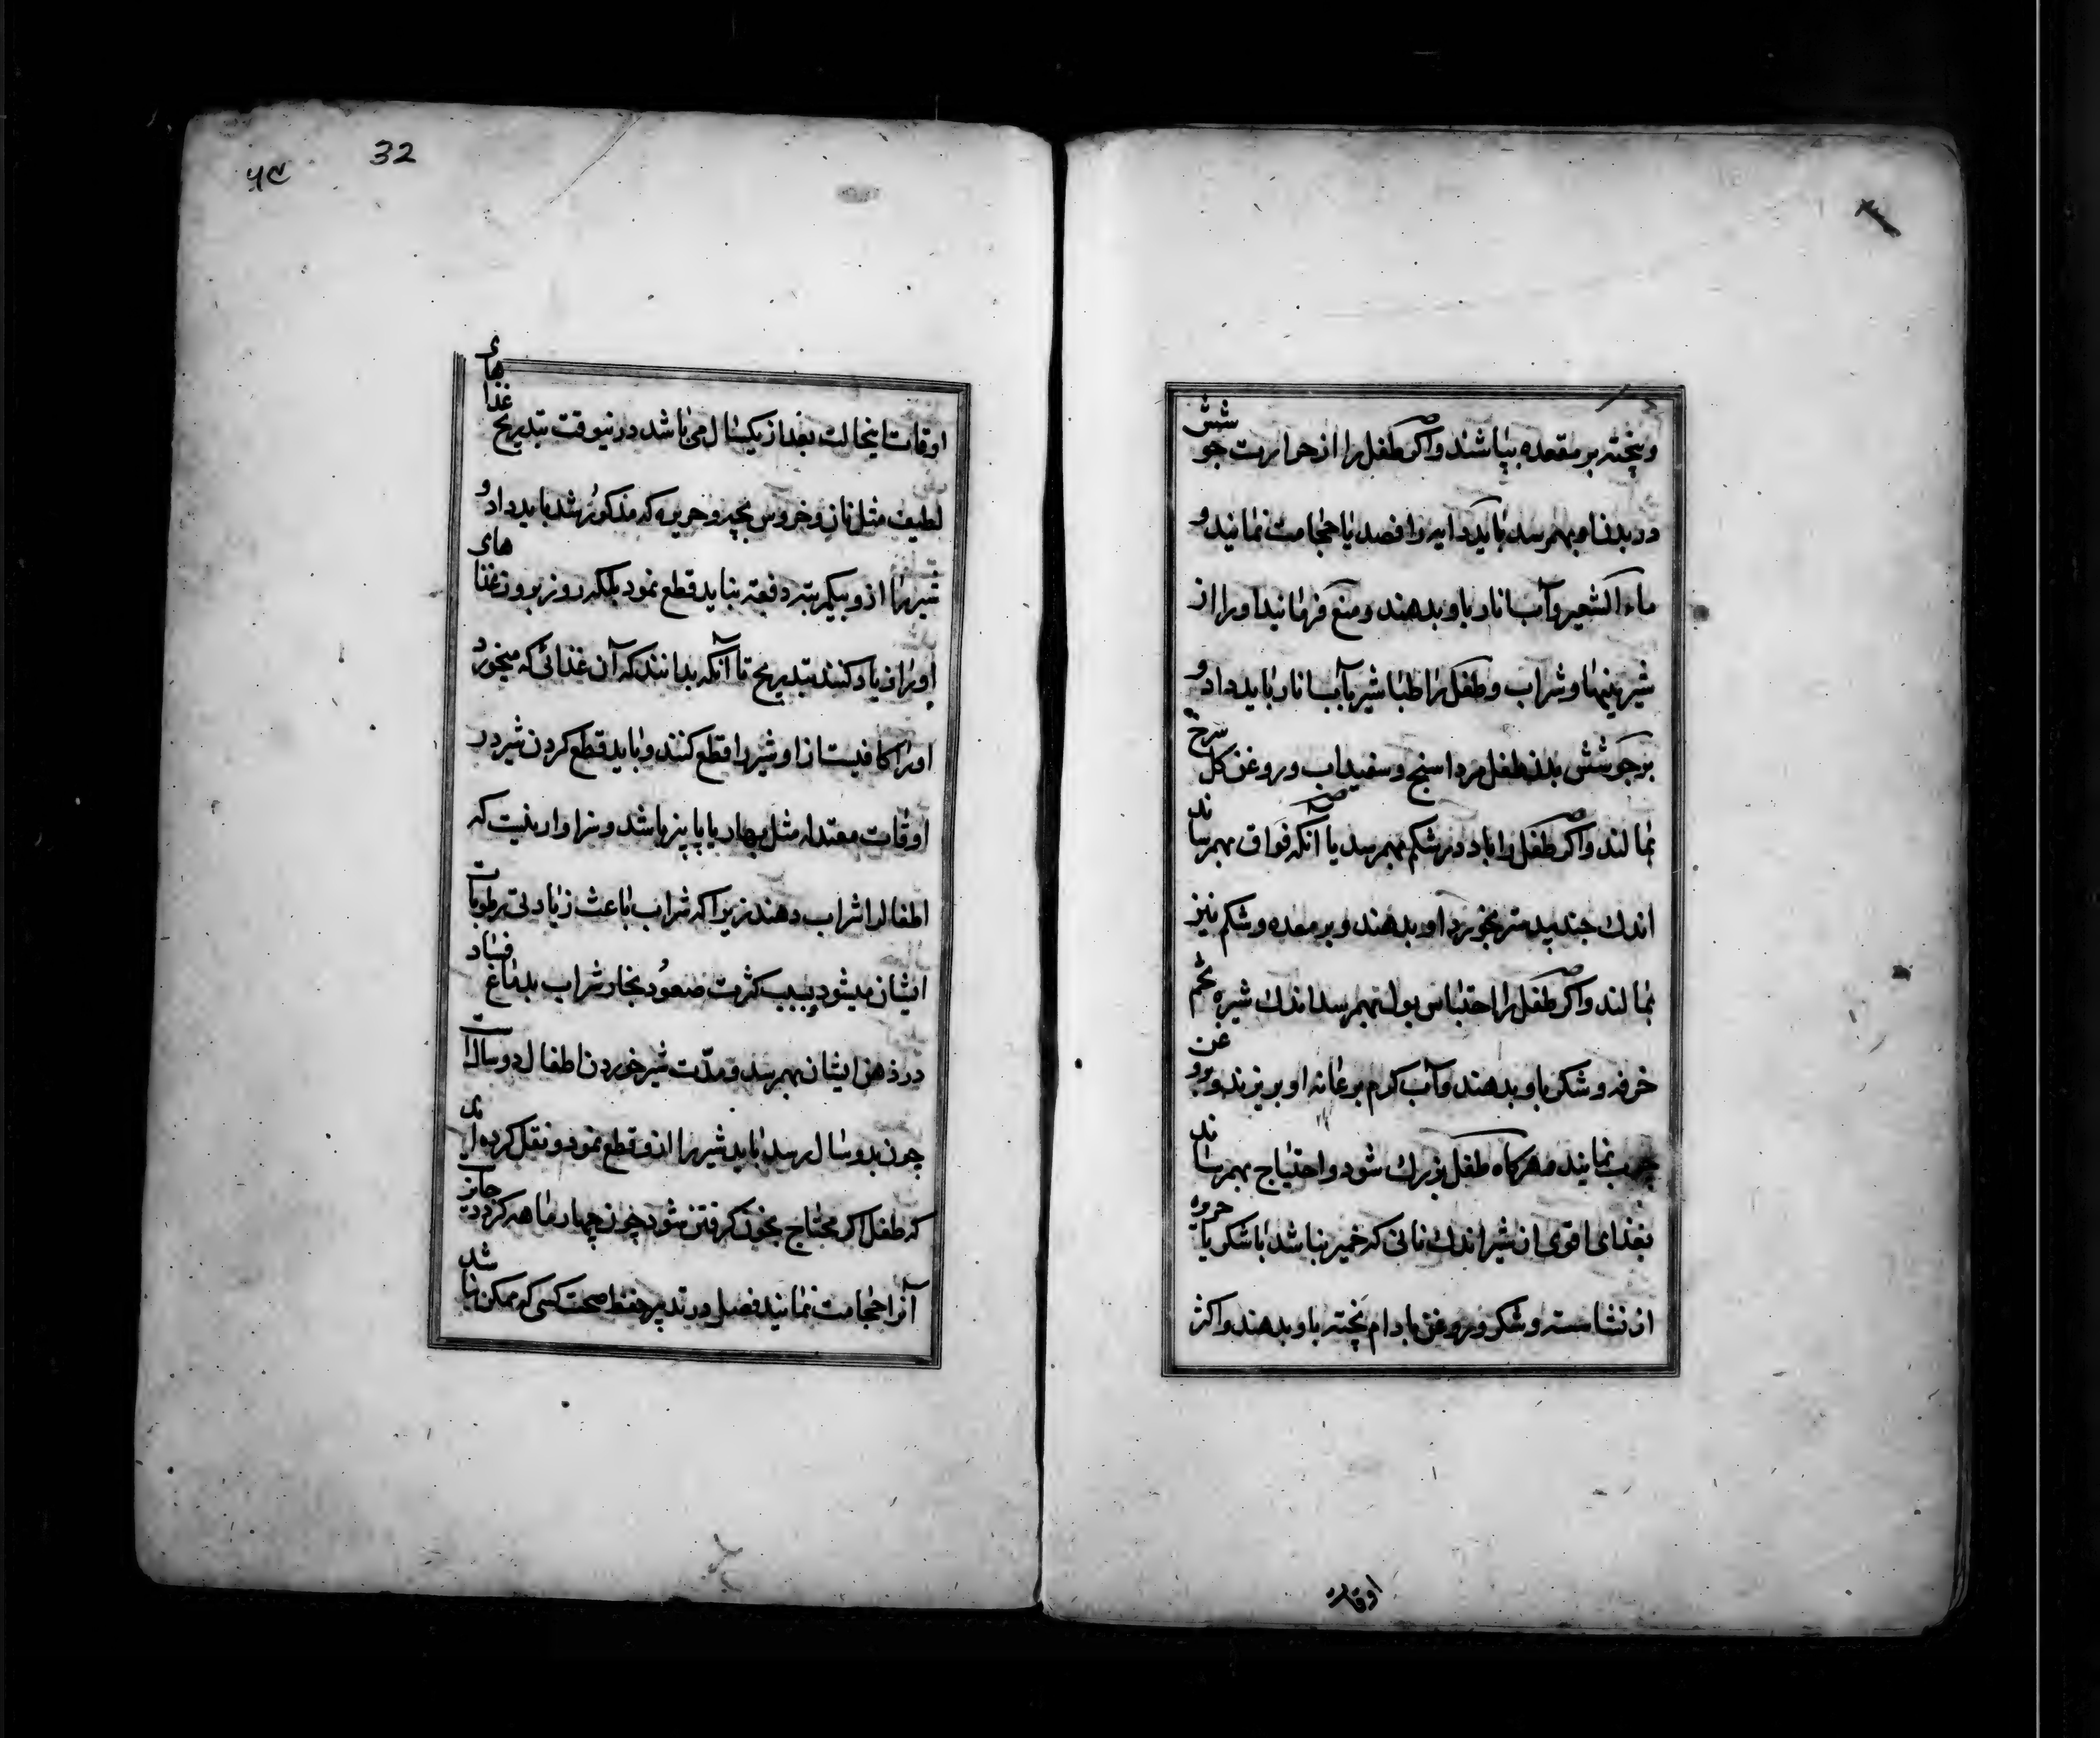 و پخته بر مقعده بپاشند و اکر طفل را از حرارت جوشش
در بدن او بهمرسد باید دایه را فصد یا حجامت نمایند و
ماء الشعیر و آب انار باو بدهند و منع فرمایند او را از
شیرینیها و شراب و طفل را طباشیر بآب انار باید داد و
بر جوشش بدن طفل مرداسنج و سفیداب و روغن کل سرخ
بمالند و اکر طفل را باد در شکم بهمرسد یا آنکه فواق بهمرساند
اندك جندبیدستر بخورد او بدهند و بر معده و شکم نیز
بمالند و اکر طفل را احتباس بول بهمرسد اندك شیره تخم
خرفه و شکر باو بدهند و آب کرم بر عانه او بریزند و بروغن
چرب نمایند و هرکاه طفل بزرك شود و احتیاج بهمرساند
بغذای اقوی از شیر اندك نانی که خمیر نباشد با شکر یا حریره
از نشاسته و شکر و روغن بادام پخته باو بدهند و اکثر
اوقات
۵۹
32
اوقات اینحالت بعد از یکسال می باشد در نیوقت بتدریج غذاهای
لطیف مثل نان و خروس بچه و حریره که مذکور شد باید داد و
شیر را از و بیکمرتبه دفعة نباید قطع نمود بلکه روز بروز غذاهای
او را زیاد کنند بتدریج تا آنکه بدانند که آن غذائی که میخورد
او را کافیست از او شیر را قطع کنند و باید قطع کردن شیر در
اوقات معتدله مثل بهار یا پاییز باشد و سزاوار نیست که
اطفال را شراب دهند زیرا که شراب باعث زیادتی رطوبات
ایشان میشود و بسبب کثرت صعود بخار شراب بدماغ فساد
در ذهن ایشان بهمرسد و مدّت شیر خوردن اطفال دو سالست
چون بدو سال رسد باید شیر را از و قطع نمود و نقل کرده اند
که طفل اکر محتاج بخون کرفتن شود چون چهار ماهه کردد جایز است
آنرا حجامت نمایند فصل در تدبیر حفظ صحت کسی که ممکن باشد